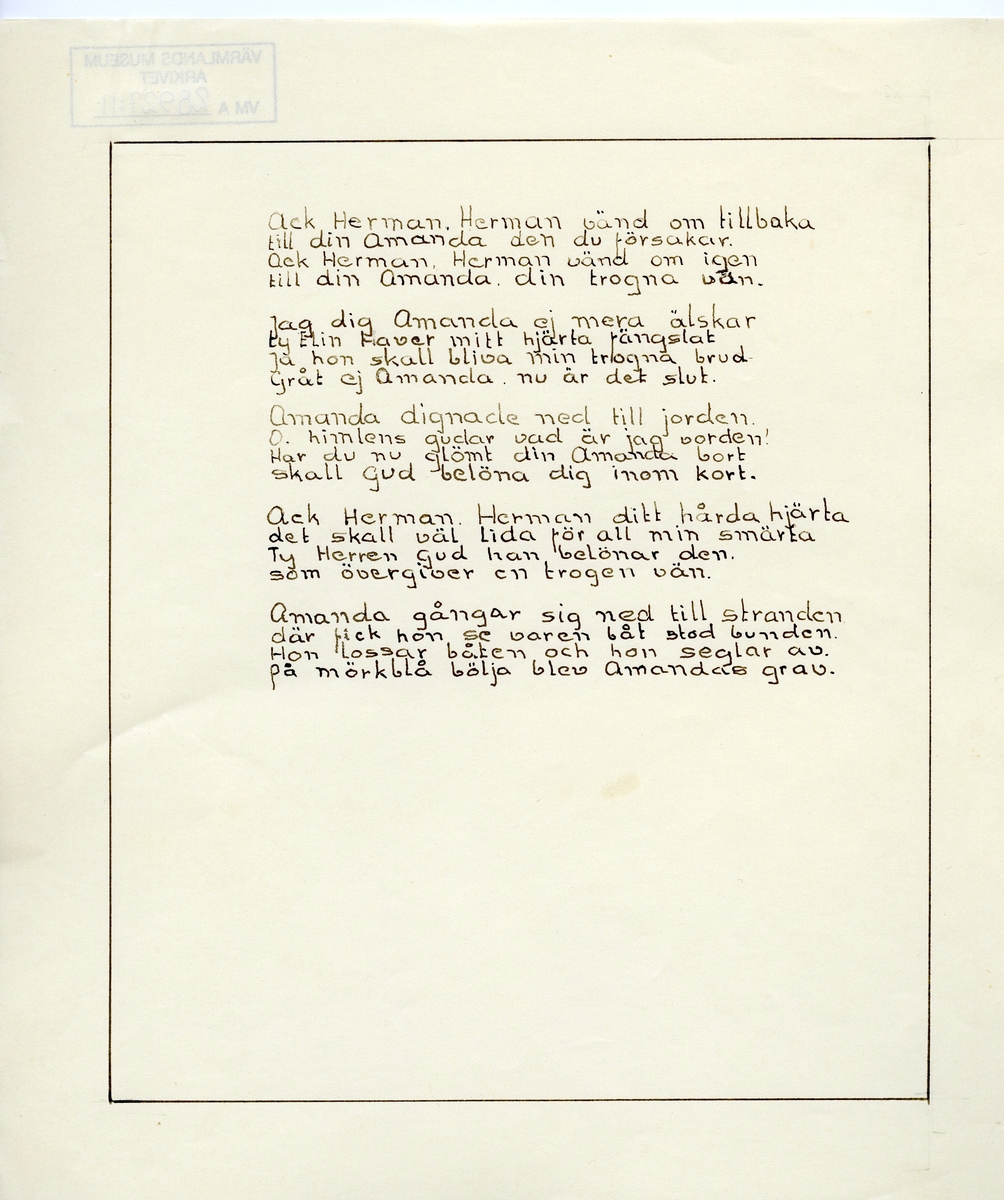 VÄRMLANDS MUSEUM
ARKIVET
VM A
Ack Herman, Herman vänd om tillbaka
till din Amanda den du försakar.
Ack Herman, Herman vänd om igen
till din Amanda. din trogna vän.
Jag dig Amanda ej mera älskar
ty Elin haver mitt hjärta fängslat
Ja hon skall bliva min trogna brud
Gråt ej Amanda. nu är det slut.
Amanda dignade ned till jorden.
O. himlens gudar vad är jag vorden!
Har du nu glömt din Amanda bort
skall Gud belöna dig inom kort.
Ack Herman. Herman ditt hårda hjärta
det skall väl lida för all min smärta
Ty Herren Gud han belönar den.
som övergiver en trogen vän.
Amanda gångar sig ned till stranden
där fick hon se varen båt stod bunden.
Hon lossar båten och hon seglar av.
på mörkblå bölja blev Amandas grav.